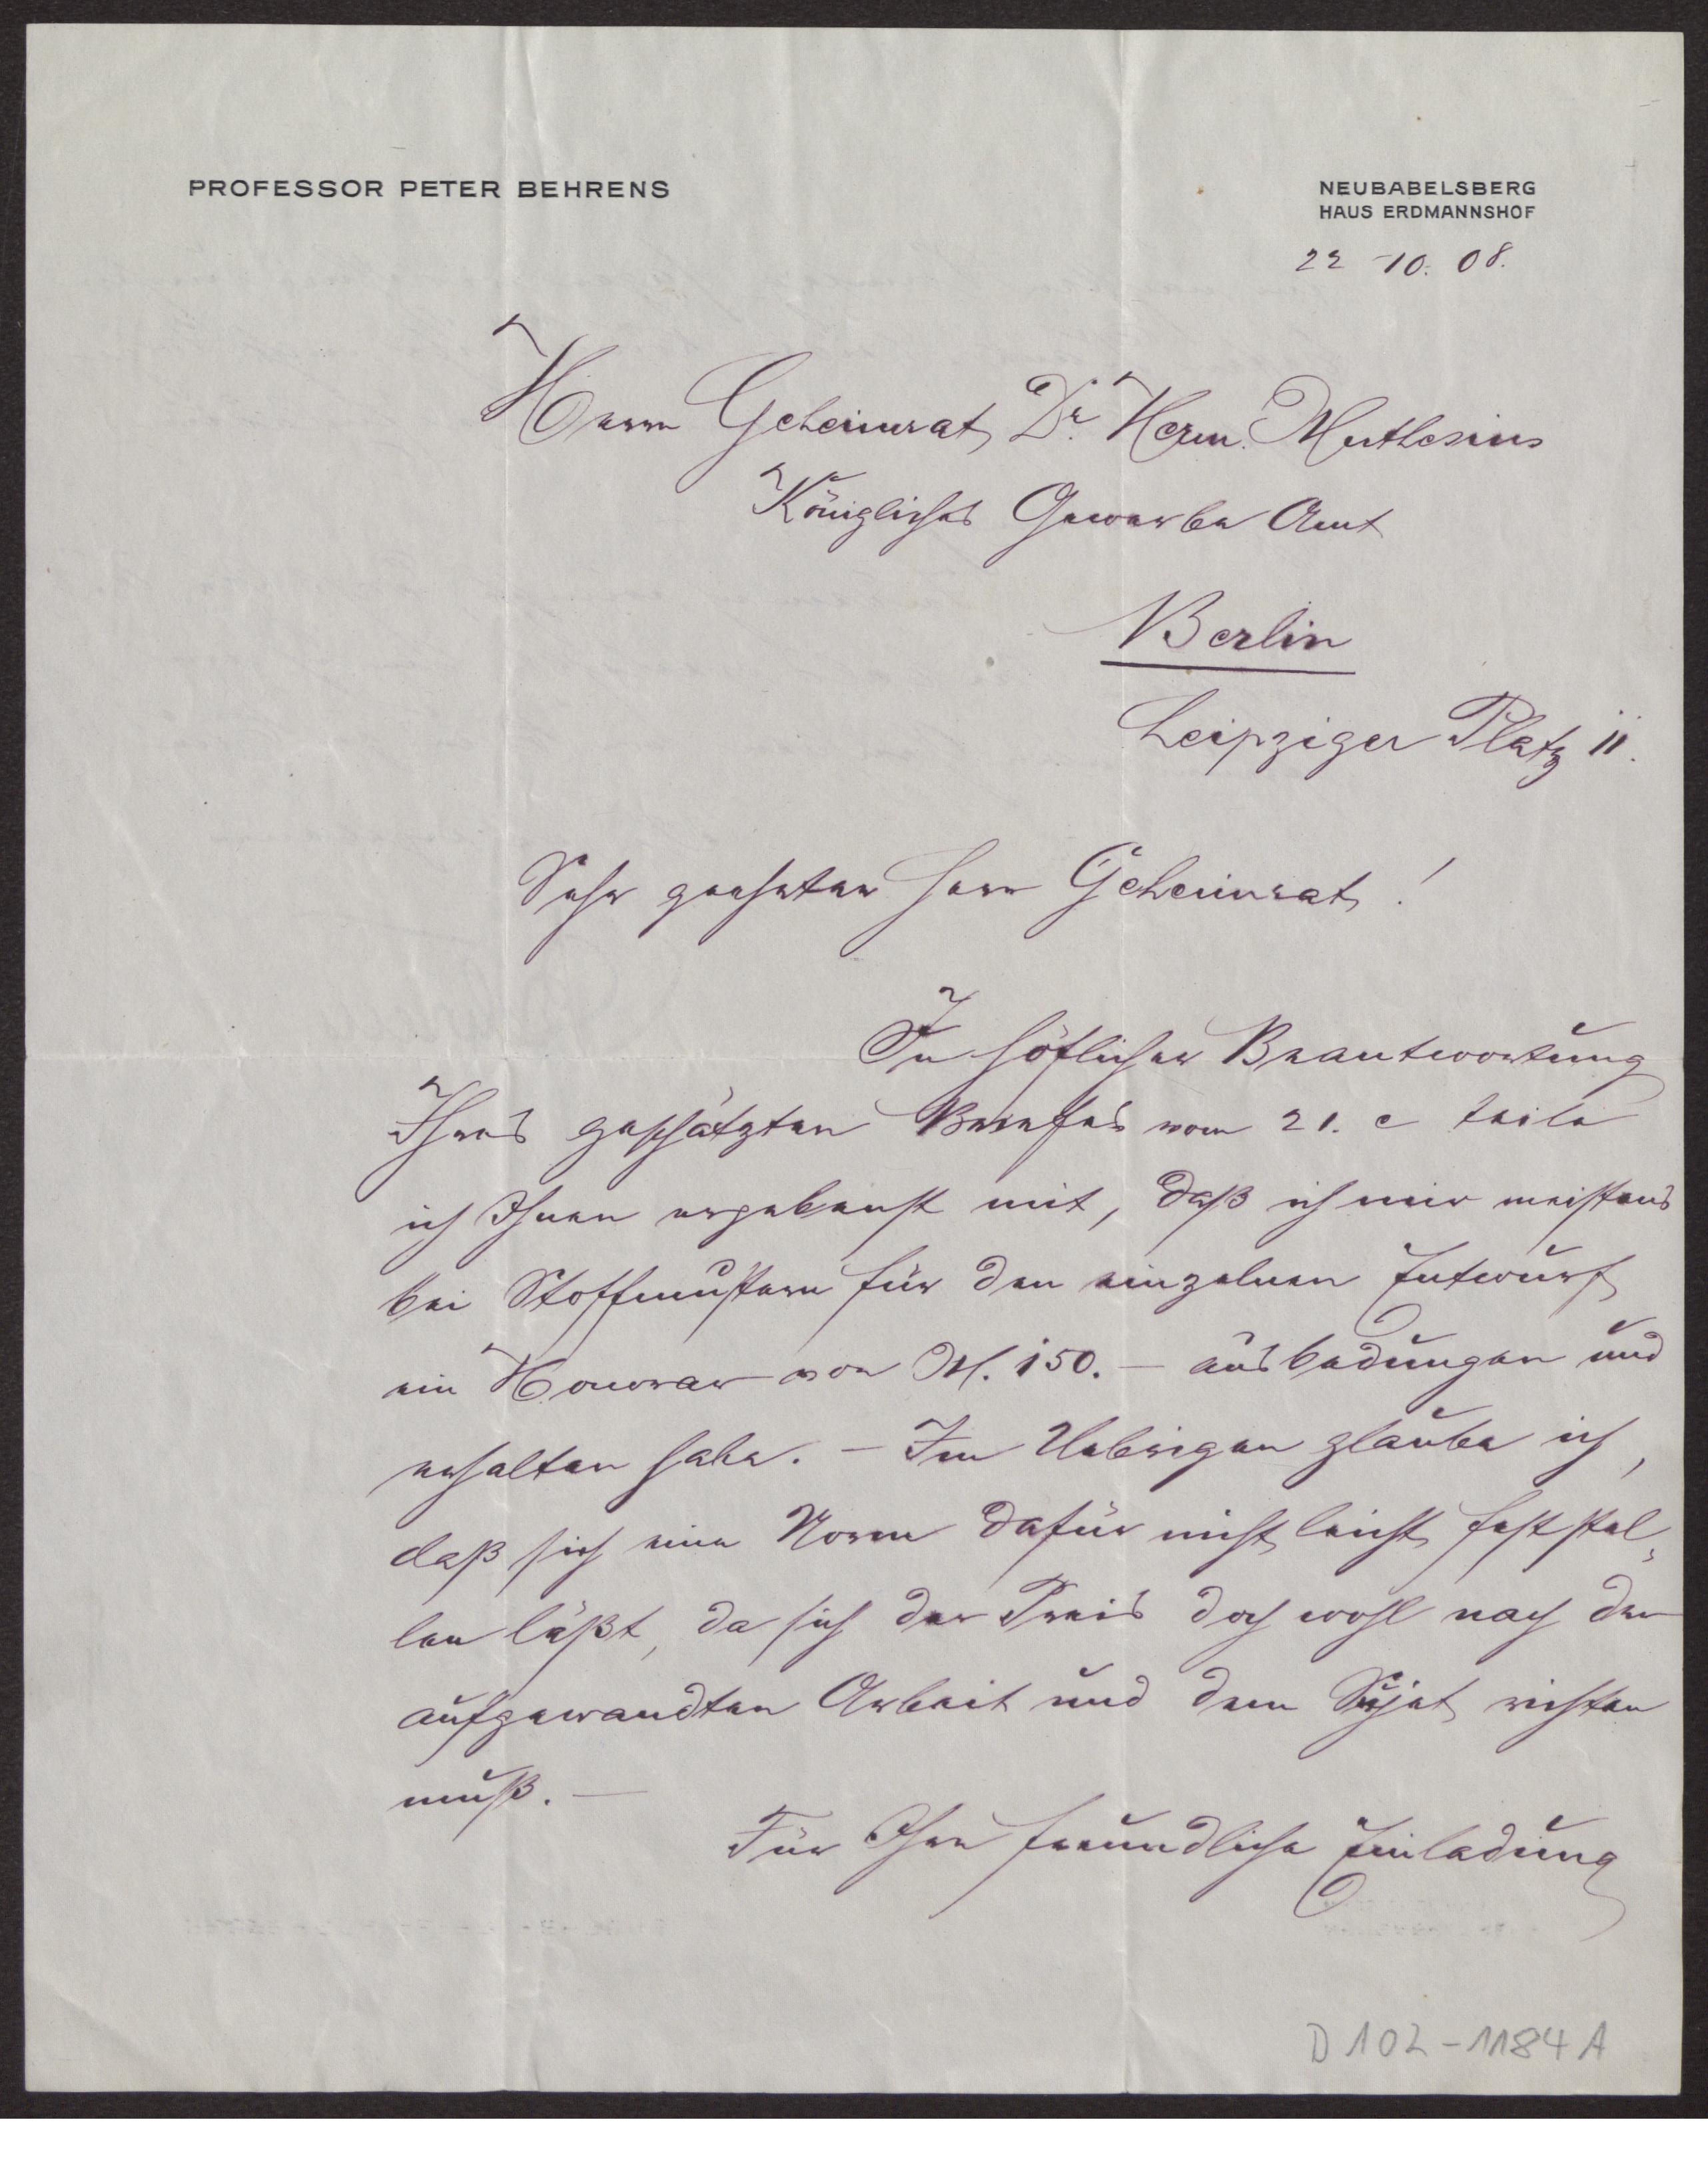 PROFESSOR PETER BEHRENS
NEUBABELSBERG
HAUS ERDMANNSHOF
22 10. 08.
Herrn Geheimrat Dr. Herm. Muthesius
Königliches Gewerbe Amt
Berlin
Leipziger Platz 11.
Sehr geehrter Herr Geheimrat!
In höflicher Beantwortung
Ihres geschätzten Briefes vom 21. c teile
ich Ihnen ergebenst mit, daß ich mir meistens
bei Stoffmustern für den einzelnen Entwurf
ein Honorar von M. 150. – ausbedungen und
erhalten habe. – Im Uebrigen glaube ich,
daß sich eine Norm dafür nicht leicht feststel-
len läßt, da sich der Preis doch wohl nach der
aufgewandten Arbeit und dem Sujet richten
muß. –
Für Ihre freundliche Einladung
D 102-1184 A